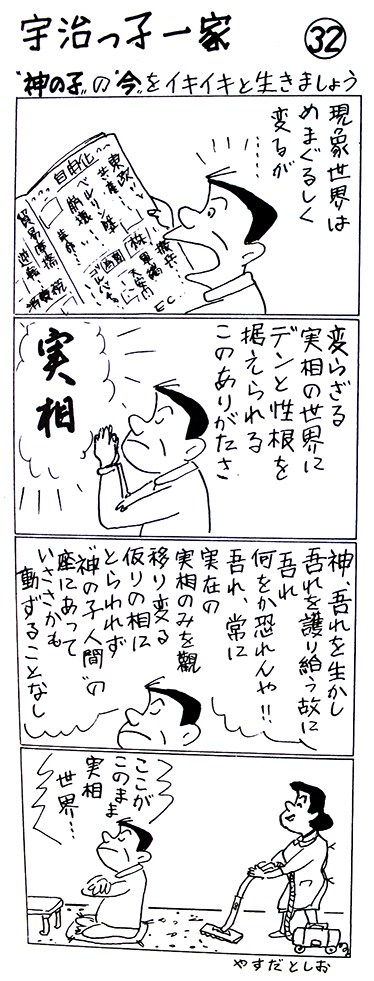 宇治っ子一家
32
"神の子"の"今"をイキイキと生きましょう
現象世界は
めまぐるしく
変るが
……
自由化
東欧
ベルリン
崩壊
貿易摩擦
消費税
E.C.
変らざる
実相の世界に
デンと性根を
据えられる
このありがたさ
実相
神、吾れを生かし
吾れを護り給う故に
吾れ
何をか恐れんや!!
吾れ、常に
実在の
実相のみを観
移り変る
仮りの相に
とらわれず
"神の子人間"の
座にあって
いささかも
動ずることなし
ここが
このまま
実相
世界…
やすだとしお